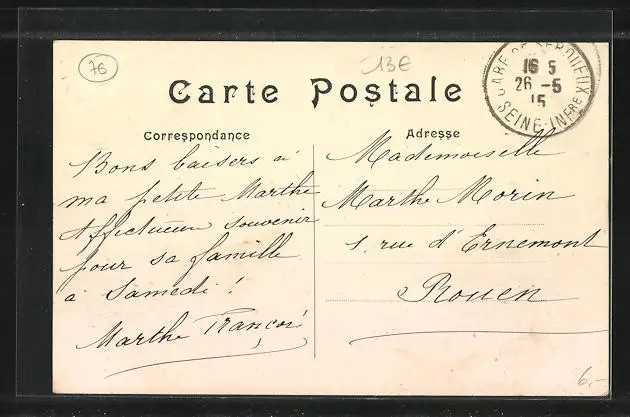 76
13€
Carte Postale
Correspondance
Bons baisers à
ma petite Marthe
Affectueux souvenir
pour sa famille
à Samedi !
Marthe Françoi
Adresse
Mademoiselle
Marthe Morin
1. rue d'Ernemont
Rouen
GARE DE SERQUEUX
16 5
26 -5
15
SEINE-INFRE
6,-